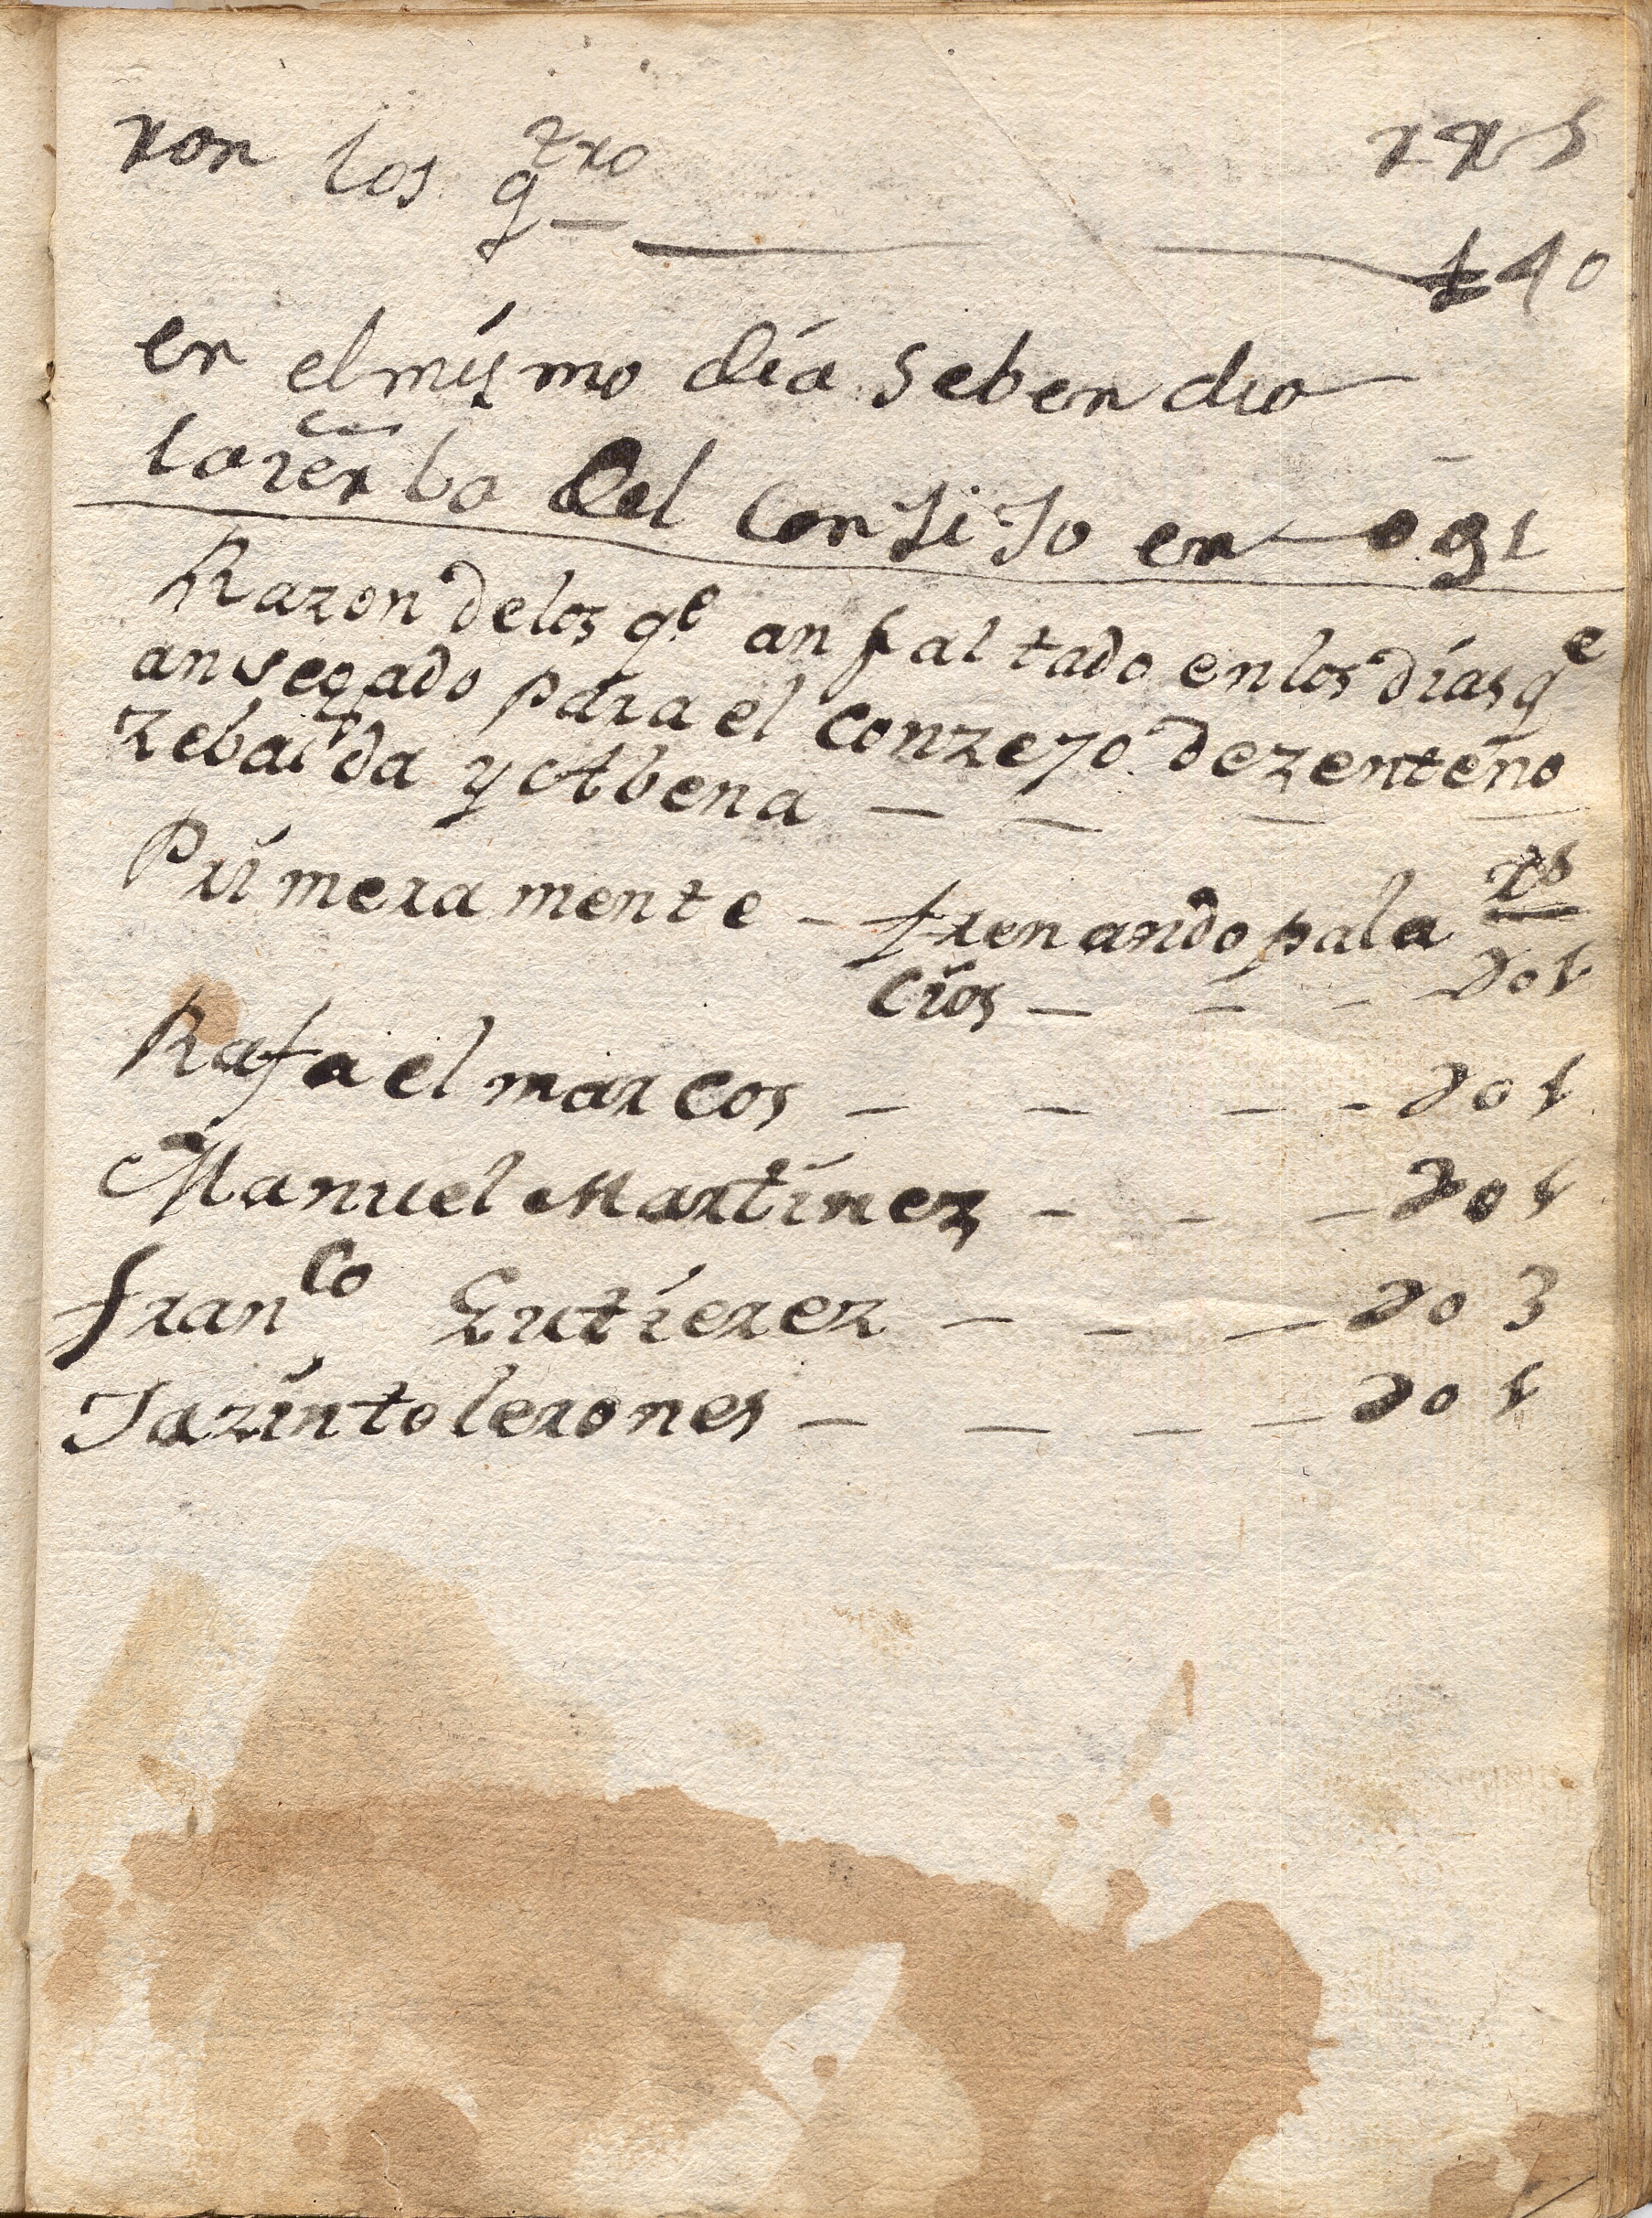 ron los q^tro rrs
140
en el mísmo día se bendio
la ierba del Consijo en 091
Razon de los q^e an faltado en los días q^e
an segado para el conzejo de zenteno
zebada y Abena
Primeramente - frenando pala rs
cios - - - - 001
Rafael marcos - - - - 001
Manuel Martínez - - - 001
fran^co Gutierez - - - 003
Jazínto lerones - - - - 001